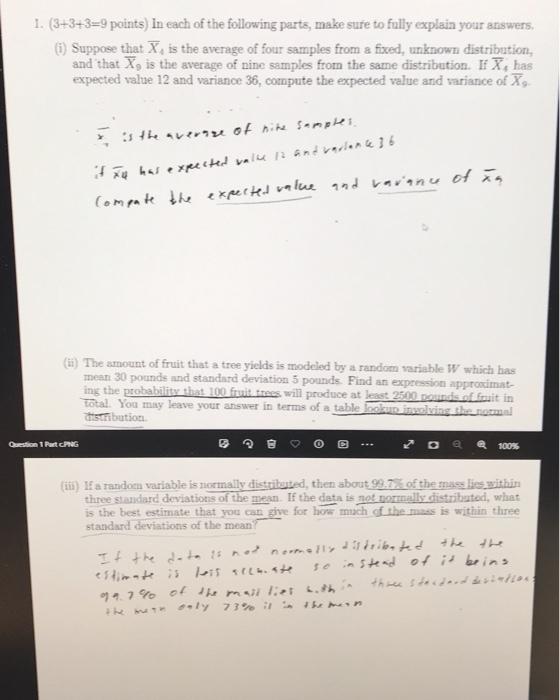 1. (3+3+3=9 points) In each of the following parts, make sure to fully explain your answers.
(i) Suppose that X̄₄ is the average of four samples from a fixed, unknown distribution,
and that X̄₉ is the average of nine samples from the same distribution. If X̄₄ has
expected value 12 and variance 36, compute the expected value and variance of X̄₉.
is the average of nine samples.
if x̄4 has expected value 12 and variance 36
Compute the expected value and variance of x̄9
(ii) The amount of fruit that a tree yields is modeled by a random variable W which has
mean 30 pounds and standard deviation 5 pounds. Find an expression approximat-
ing the probability that 100 fruit trees will produce at least 2500 pounds of fruit in
total. You may leave your answer in terms of a table lookup involving the normal
distribution.
Question 1 Part c.PNG
100%
(iii) If a random variable is normally distributed, then about 99.7% of the mass lies within
three standard deviations of the mean. If the data is not normally distributed, what
is the best estimate that you can give for how much of the mass is within three
standard deviations of the mean?
If the data is not normally distributed the the
estimate is less accurate so instead of it being
99.7% of the mass lies within three standard deviations
the mean only 73% is in the mean